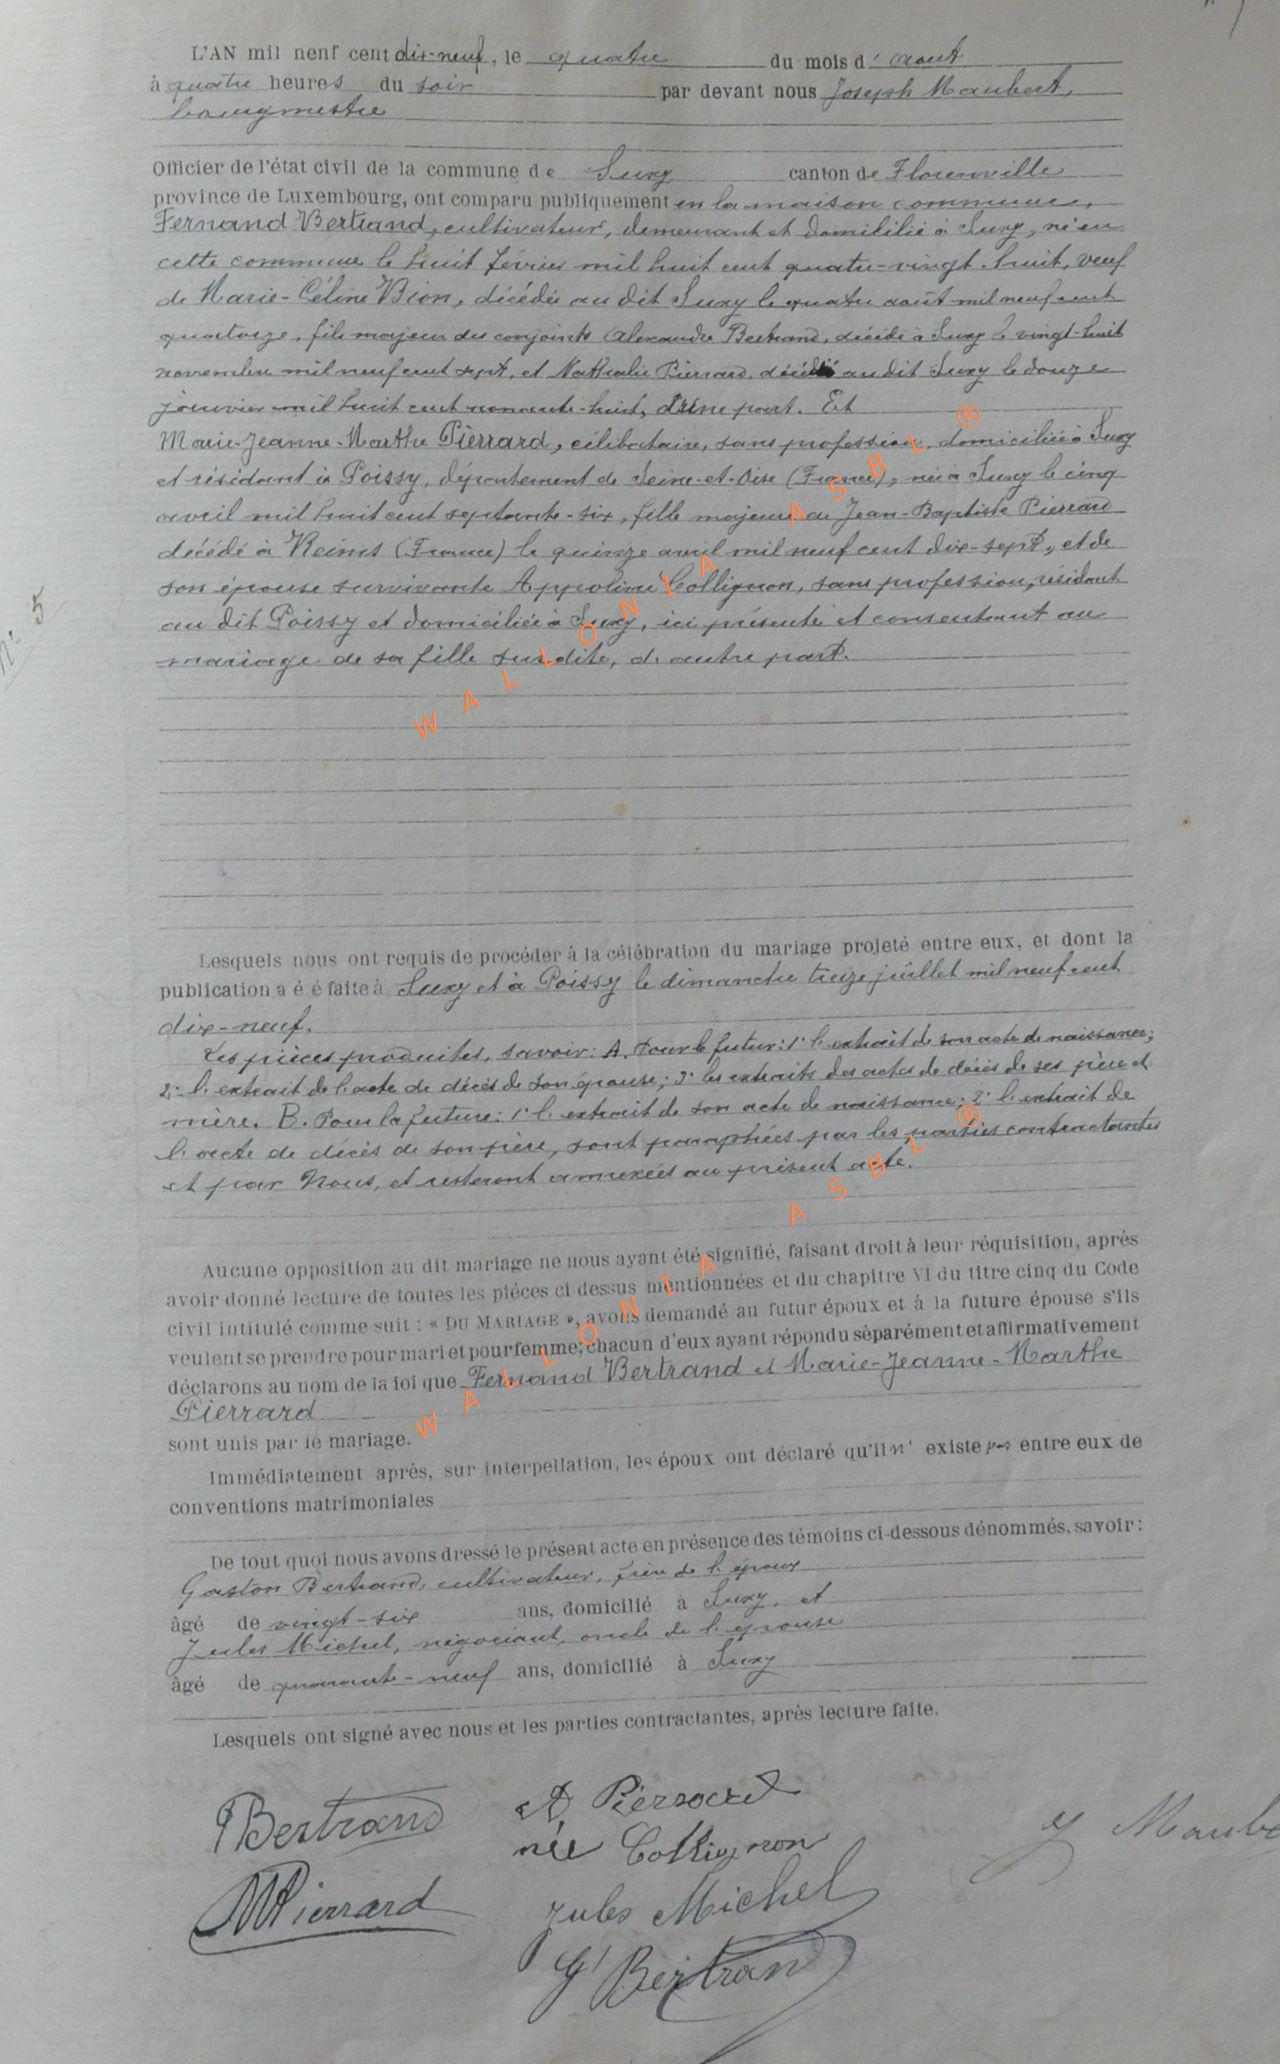 L'AN mil neuf cent dix-neuf, le quatre du mois d'aout
à quatre heures du soir par devant nous Joseph Maubert,
bourgmestre
Officier de l'état civil de la commune de Suxy canton de Florenville
province de Luxembourg, ont comparu publiquement en la maison commune,
Fernand Bertrand, cultivateur, demeurant et domicilié à Suxy, né en
cette commune le huit février mil huit cent quatre-vingt-huit, veuf
de Marie-Céline Bion, décédée au dit Suxy le quatre août mil neuf cent
quatorze, fils majeur des conjoints Alexandre Bertrand, décédé à Suxy le vingt-huit
novembre mil neuf cent sept, et Nathalie Pierrard, décédée au dit Suxy le douze
janvier mil huit cent nonante-huit, d'une part. Et
Marie-Jeanne-Marthe Pierrard, célibataire, sans profession, domiciliée à Suxy
et résidant à Poissy, département de Seine-et-Oise (France), née à Suxy le cinq
avril mil huit cent septante-six, fille majeure de Jean-Baptiste Pierrard
décédé à Reims (France) le quinze avril mil neuf cent dix-sept, et de
son épouse survivante Appoline Collignon, sans profession, résidant
au dit Poissy et domiciliée à Suxy, ici présente et consentant au
mariage de sa fille susdite, d'autre part.
N° 5
Lesquels nous ont requis de procéder à la célébration du mariage projeté entre eux, et dont la
publication a é é faite à Suxy et à Poissy le dimanche treize juillet mil neuf cent
dix-neuf.
Les pièces produites, savoir: A. Pour le futur: 1° l'extrait de son acte de naissance;
2° l'extrait de l'acte de décès de son épouse; 3° les extraits des actes de décès de ses père et
mère. B. Pour la future: 1° l'extrait de son acte de naissance; 2° l'extrait de
l'acte de décès de son père, sont paraphées par les parties contractantes
et par Nous, et resteront annexées au présent acte.
Aucune opposition au dit mariage ne nous ayant été signifié, faisant droit à leur réquisition, après
avoir donné lecture de toutes les pièces ci-dessus mentionnées et du chapitre VI du titre cinq du Code
civil intitulé comme suit : « DU MARIAGE », avons demandé au futur époux et à la future épouse s'ils
veulent se prendre pour mari et pour femme; chacun d'eux ayant répondu séparément et affirmativement
déclarons au nom de la loi que Fernand Bertrand et Marie-Jeanne-Marthe
Pierrard
sont unis par le mariage.
Immédiatement après, sur interpellation, les époux ont déclaré qu'il n'existe pas entre eux de
conventions matrimoniales
De tout quoi nous avons dressé le présent acte en présence des témoins ci-dessous dénommés. savoir :
Gaston Bertrand, cultivateur, frère de l'époux
âgé de vingt-six ans, domicilié à Suxy, et
Jules Michel, négociant, oncle de l'épouse
âgé de quarante-neuf ans, domicilié à Suxy
Lesquels ont signé avec nous et les parties contractantes, après lecture faite.
FBertrand A Pierrard
née Collignon J Maube
MPierrard Jules Michel
G Bertrand
WALLONIA ASBL ®
WALLONIA ASBL ®